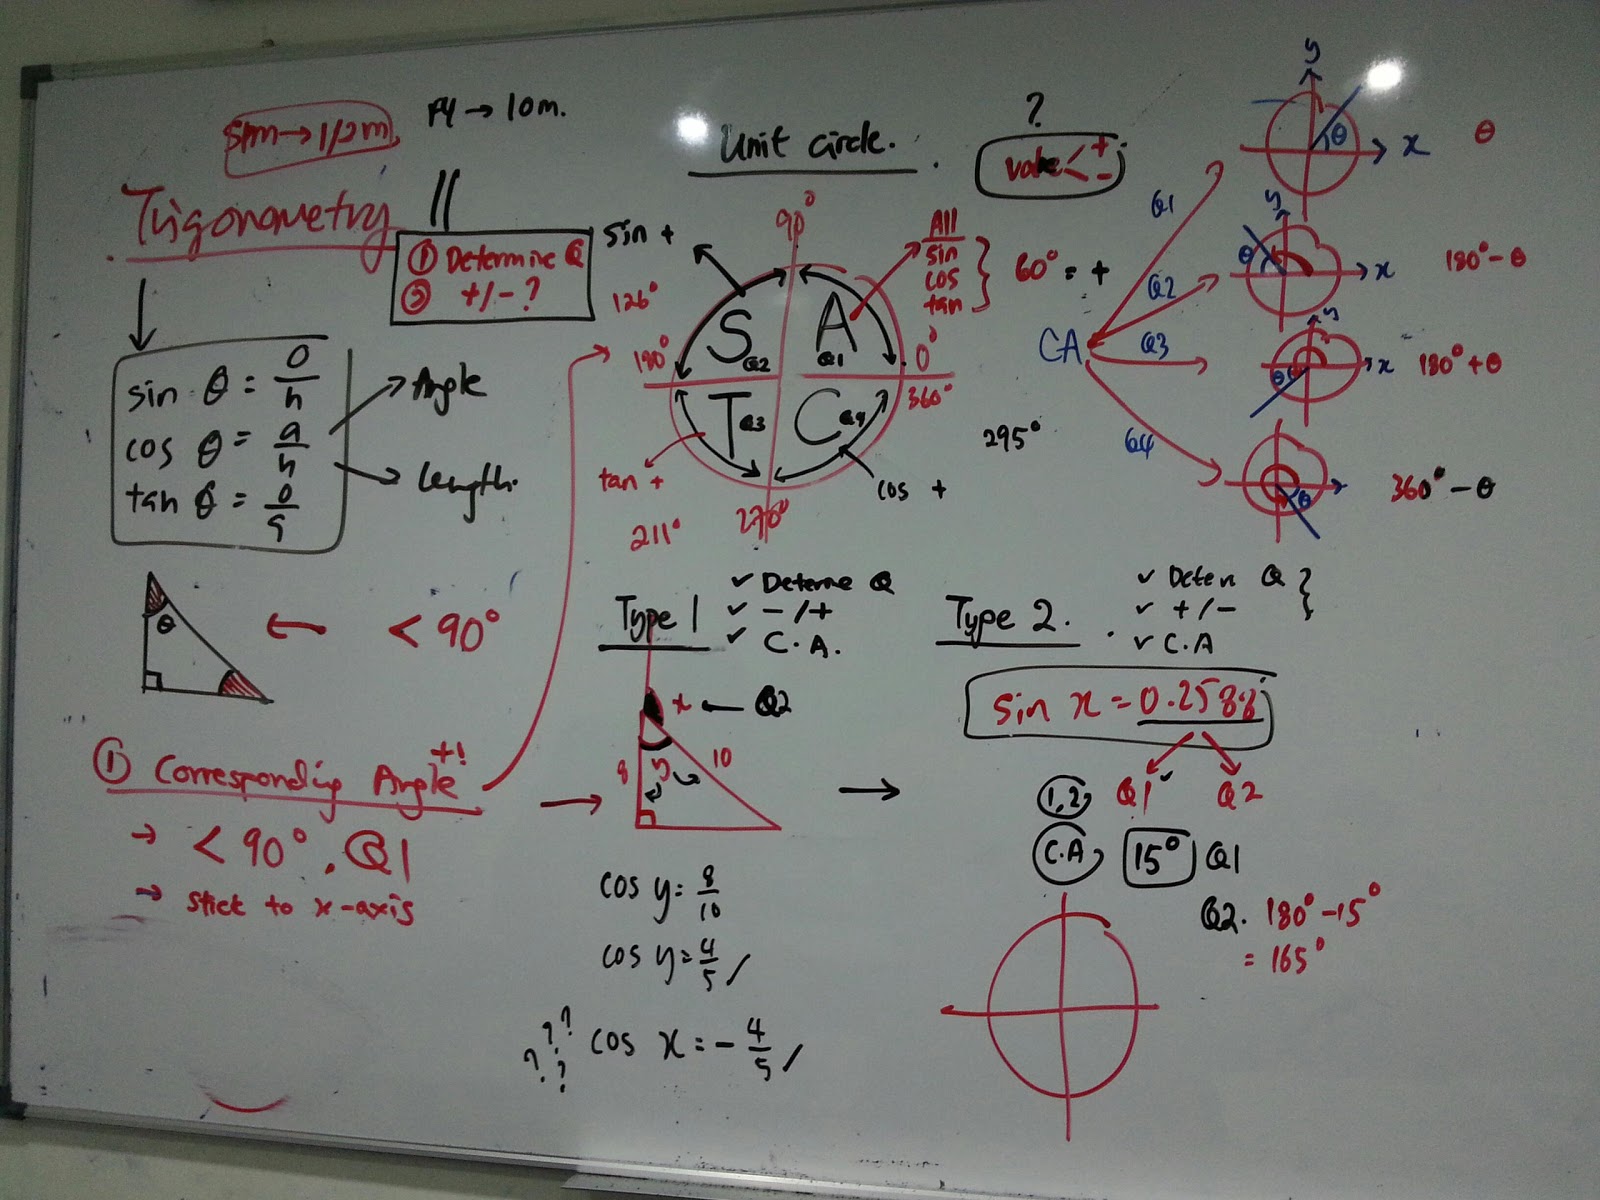 spm → 1/2m
P4 → 10m.
Trigonometry
① Determine Q
② +/- ?
sin θ = o/h
cos θ = a/h
tan θ = o/a
Angle
Length.
θ
< 90°
① Corresponding Angle +!
→ < 90°. Q1
→ stick to x-axis
Unit circle.
?
value < + -
90°
sin +
126°
180°
S Q2
A Q1
T Q3
C Q4
0°
360°
270°
tan +
211°
cos +
295°
All
sin
cos
tan
60° = +
CA
Q1
y
x
θ
θ
Q2
y
x
θ
180° - θ
Q3
y
x
θ
180° + θ
Q4
θ
360° - θ
Type 1
✓ Determe Q
✓ - / +
✓ C.A.
x ← Q2
8
y
10
cos y = 8/10
cos y = 4/5
? ? ? ?
cos x = - 4/5
Type 2.
✓ Deten Q
✓ + / -
✓ C.A
sin x = 0.2588
1,2
Q1 ✓
Q2
C.A
15° Q1
Q2. 180° - 15°
= 165°